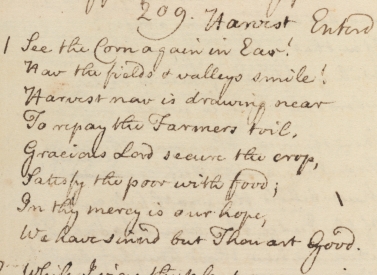 209. Harvest Enford
1 See the Corn again in Ear!
How the fields & valleys smile!
Harvest now is drawing near
To repay the Farmers toil.
Gracious Lord secure the crop,
Satisfy the poor with food;
In thy mercy is our hope,
We have sinn'd but Thou art Good.
While I view the